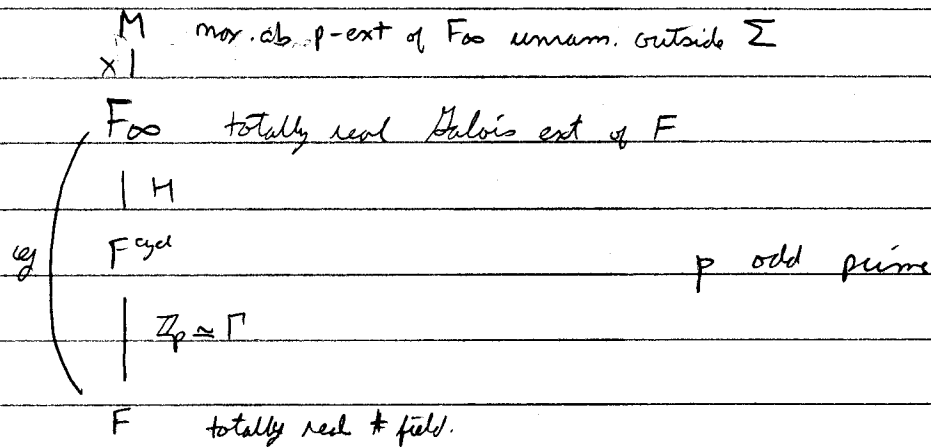 M max. ab. p-ext of F∞ unram. outside Σ
X |
F∞ totally real Galois ext of F
| H
G F^cycl
p odd prime
| ℤp ≃ Γ
F totally real # field.